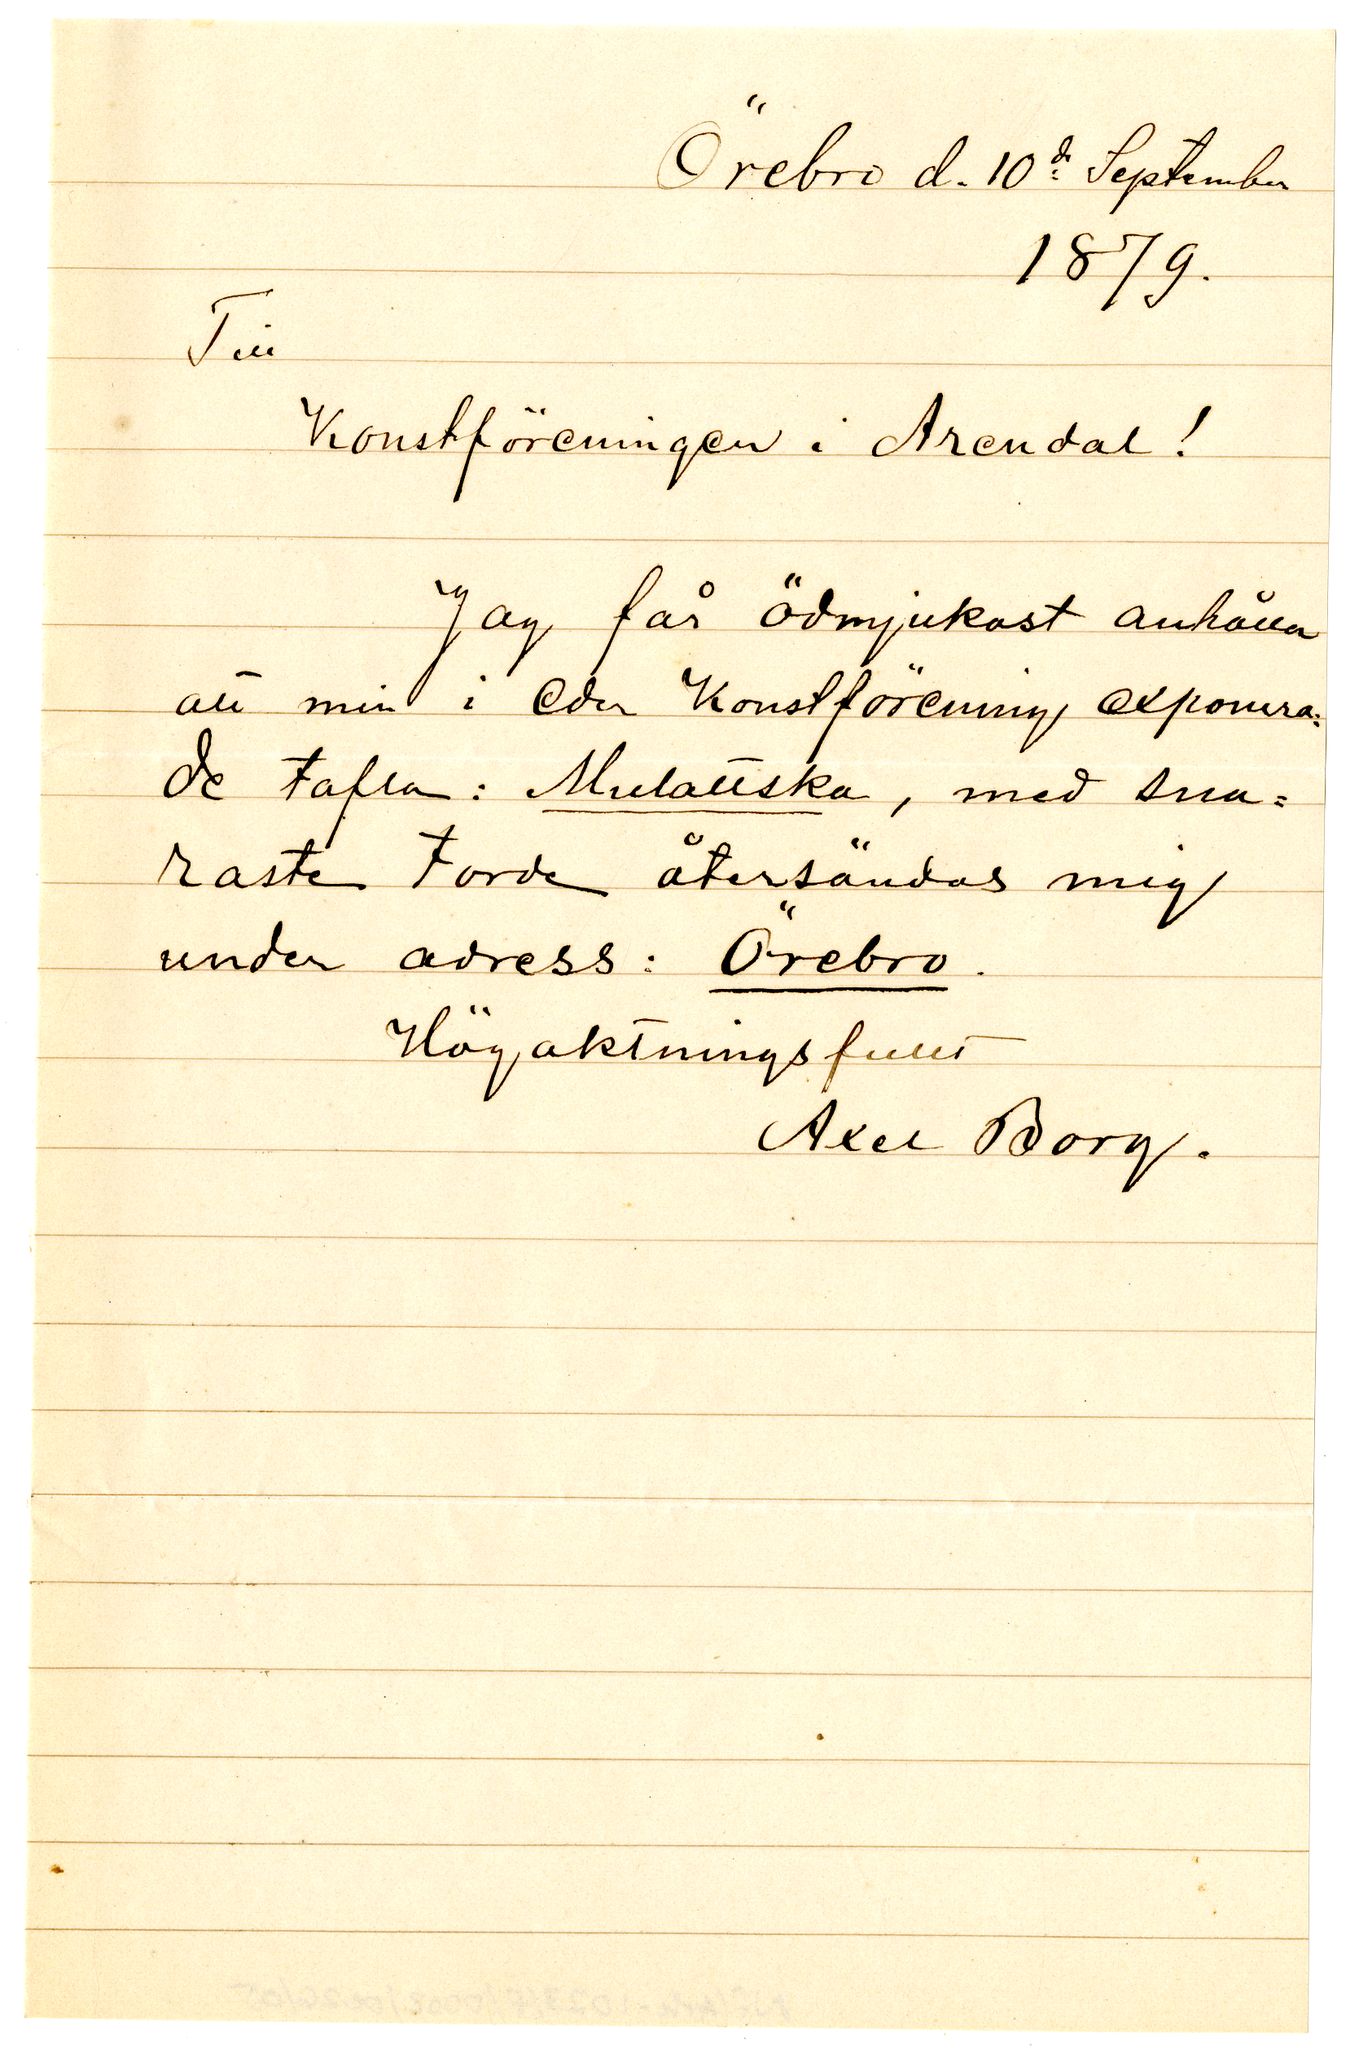 Örebro d. 10de September
1879.
Till
Konstföreningen i Arendal!
Jag får ödmjukast anhålla
att min i Eder Konstförening exponera=
de tafla: Mulattska, med sna=
raste torde återsändas mig
under adress: Örebro.
Högaktningsfullt
Axel Borg.